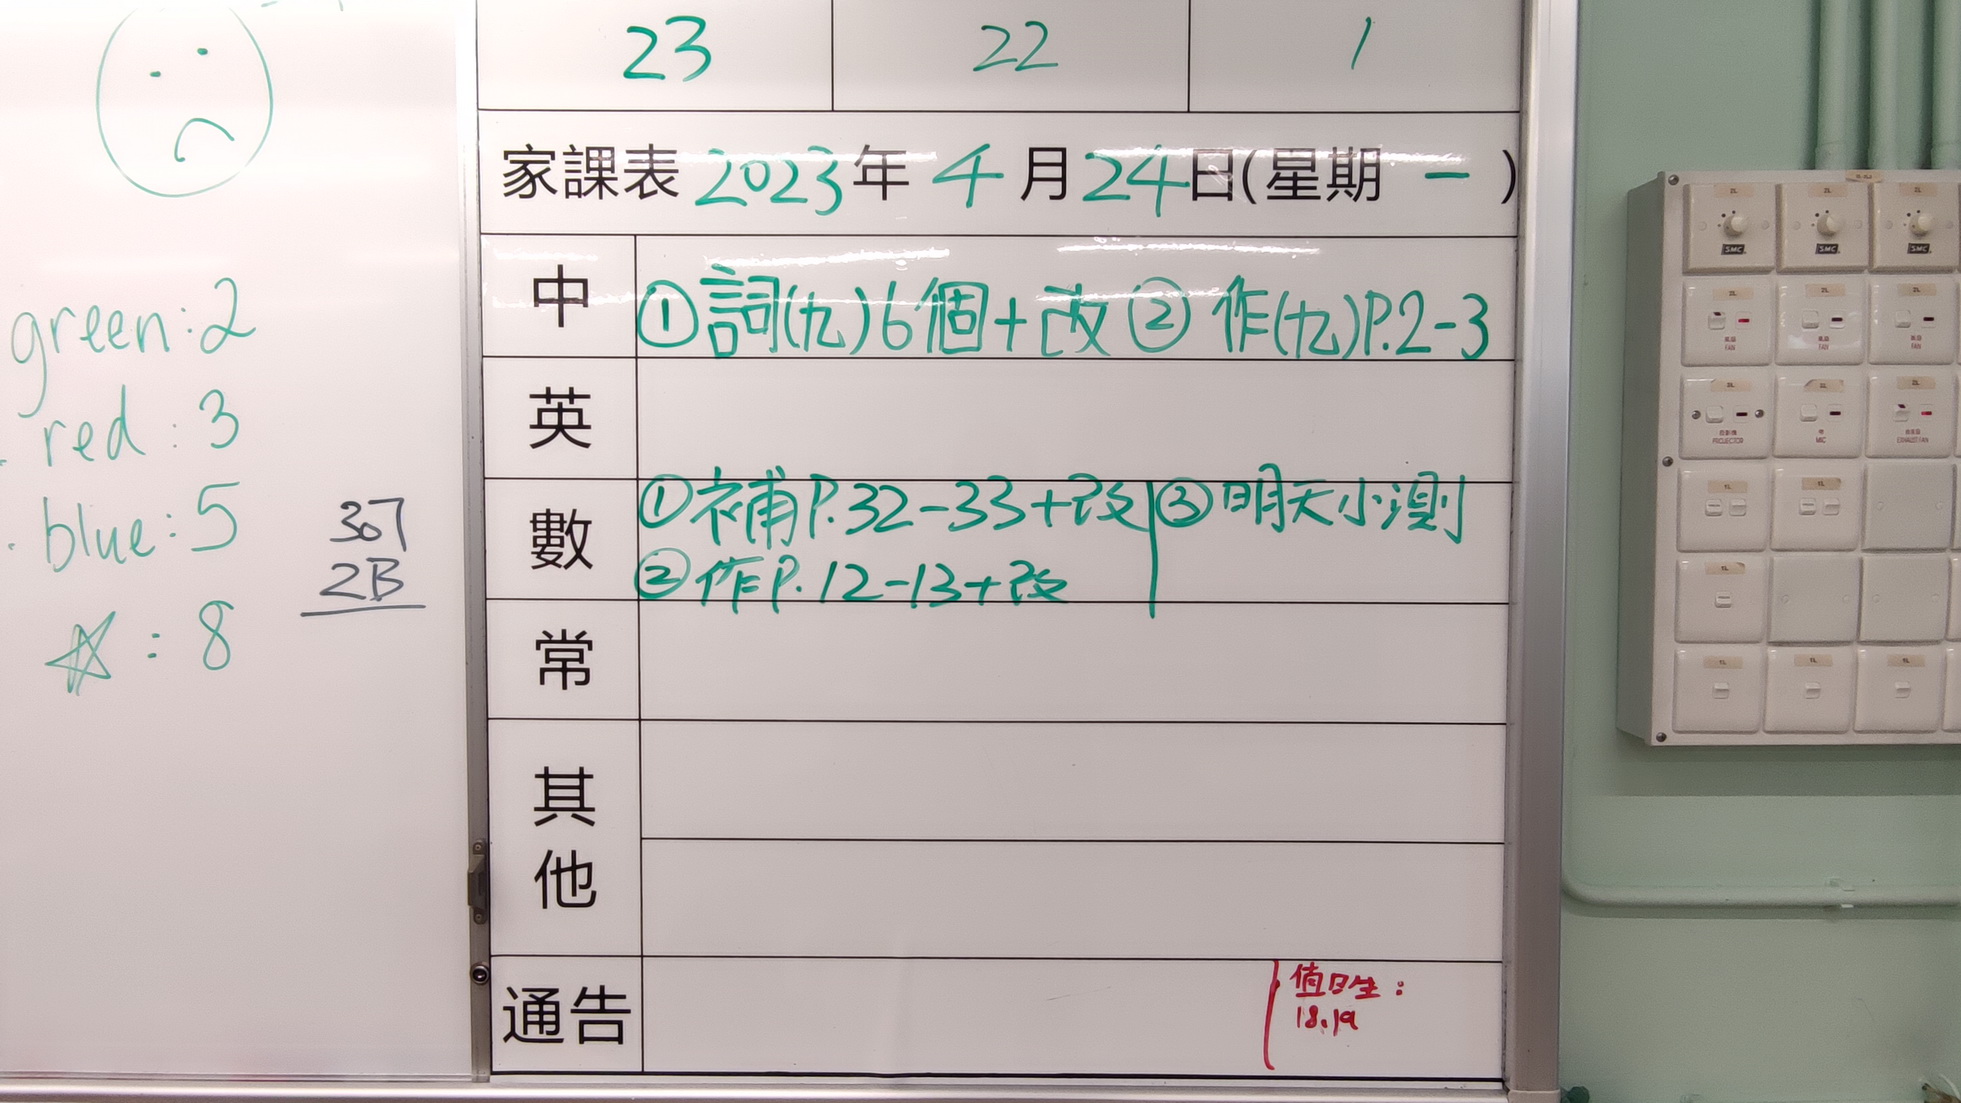 green:2
red:3
blue:5
☆:8
307
2B
23 22 1
家課表 2023年 4月24日(星期一)
中 ①詞(九)6個+改 ②作(九)P.2-3
英
數 ①補P.32-33+改 ③明天小測
②作P.12-13+改
常
其他
通告
值日生:
18.19
SMC SMC SMC
FAN FAN FAN
PROJECTOR MIC EXHAUST FAN